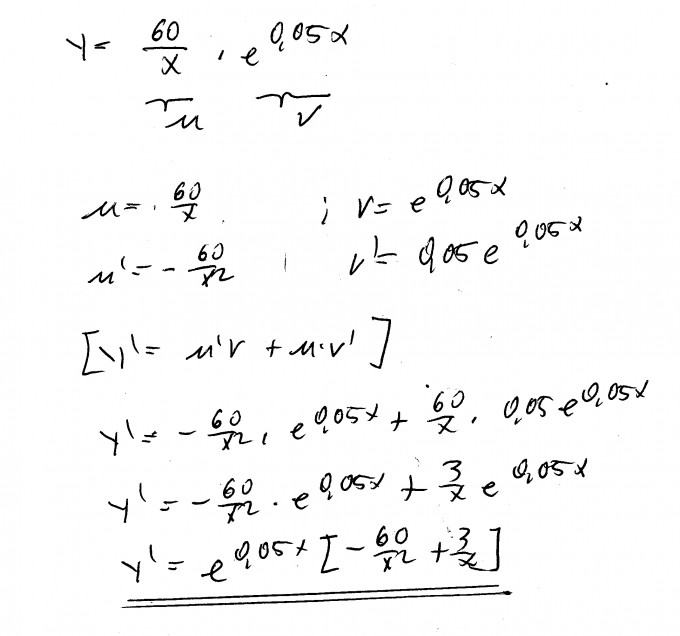 y = 60/x · e^0,05x
u v
u = 60/x ; v = e^0,05x
u' = - 60/x² ; v' = 0,05 e^0,05x
[y' = u'v + u·v']
y' = - 60/x² · e^0,05x + 60/x · 0,05 e^0,05x
y' = - 60/x² · e^0,05x + 3/x e^0,05x
y' = e^0,05x [- 60/x² + 3/x]